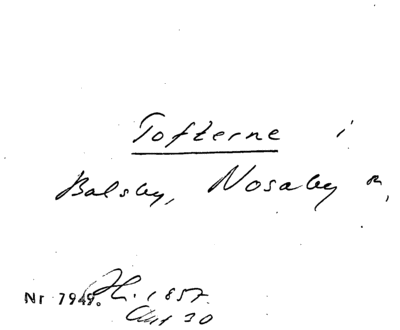 Tofterne i
Balsby, Nosaby n,
Nr 7949. H. 1857.
30